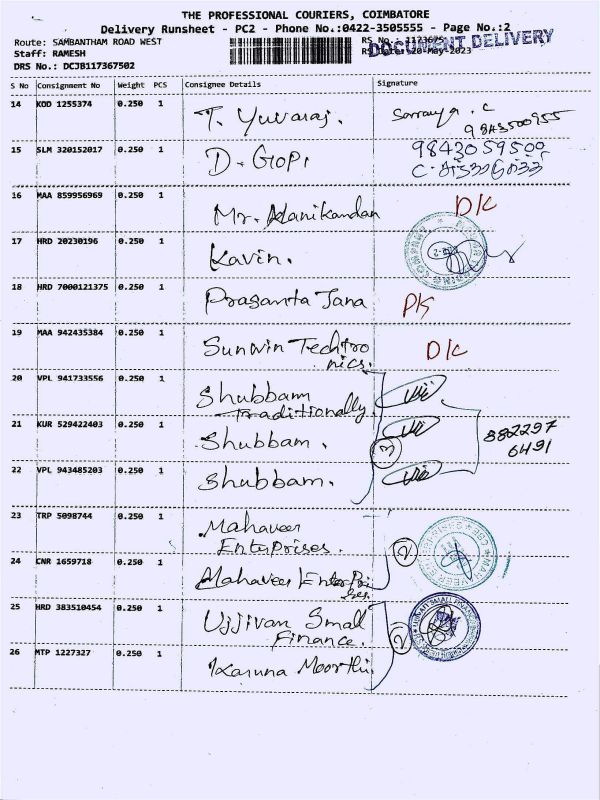 THE PROFESSIONAL COURIERS, COIMBATORE
Delivery Runsheet - PC2 - Phone No.:0422-3505555 - Page No.:2
Route: SAMBANTHAM ROAD WEST
Staff: RAMESH
DRS No.: DCJB117367502
RS No.: 1173675
RS Date: 20-May-2023
DOCUMENT DELIVERY
S No Consignment No Weight PCS Consignee Details Signature
14 KOD 1255374 0.250 1 T. Yuvaraj. Saranya . C
9843500955
15 SLM 320152017 0.250 1 D. Gopi 9843059500
16 MAA 859956969 0.250 1 Mr. Manikandan D/C
17 HRD 20230196 0.250 1 Kavin.
18 HRD 7000121375 0.250 1 Prasanta Jana
19 MAA 942435384 0.250 1 Sunwin Techtro
nics. D/C
20 VPL 941733556 0.250 1 Shubbam
Traditionally
21 KUR 529422403 0.250 1 Shubbam.
3
882297
6491
22 VPL 943485203 0.250 1 Shubbam.
23 TRP 5098744 0.250 1 Mahaveer
Enterprises.
2
24 CNR 1659718 0.250 1 Mahaveer EnterPri
ses.
25 HRD 383510454 0.250 1 Ujjivan Small
Finance.
2
26 MTP 1227327 0.250 1 Karuna Moorthi.